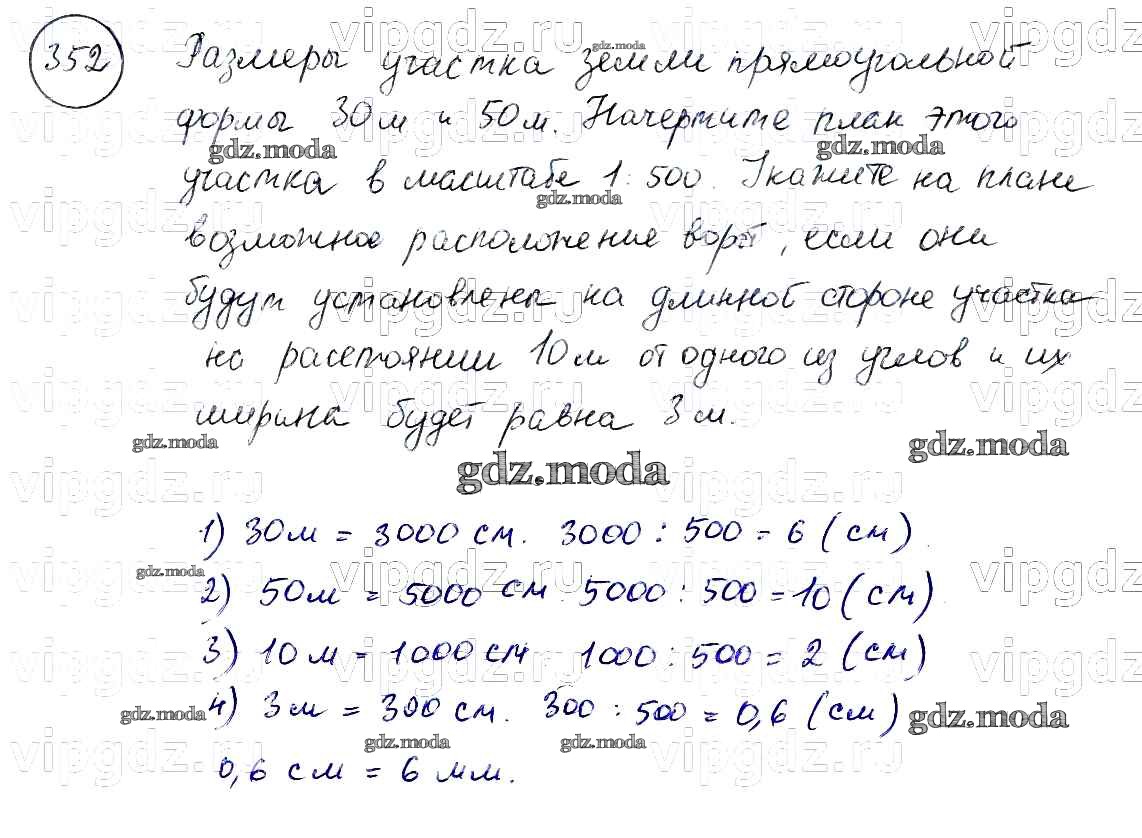 352
Размеры участка земли прямоугольной
формы 30 м и 50 м. Начертите план этого
участка в масштабе 1:500. Укажите на плане
возможное расположение ворот, если они
будут установлены на длинной стороне участка
на расстоянии 10 м от одного из углов и их
ширина будет равна 3 м.
gdz.moda
1) 30 м = 3000 см. 3000 : 500 = 6 (см)
2) 50 м = 5000 см 5000 : 500 = 10 (см)
3) 10 м = 1000 см 1000 : 500 = 2 (см)
4) 3 м = 300 см. 300 : 500 = 0,6 (см)
0,6 см = 6 мм.
vipgdz.ru